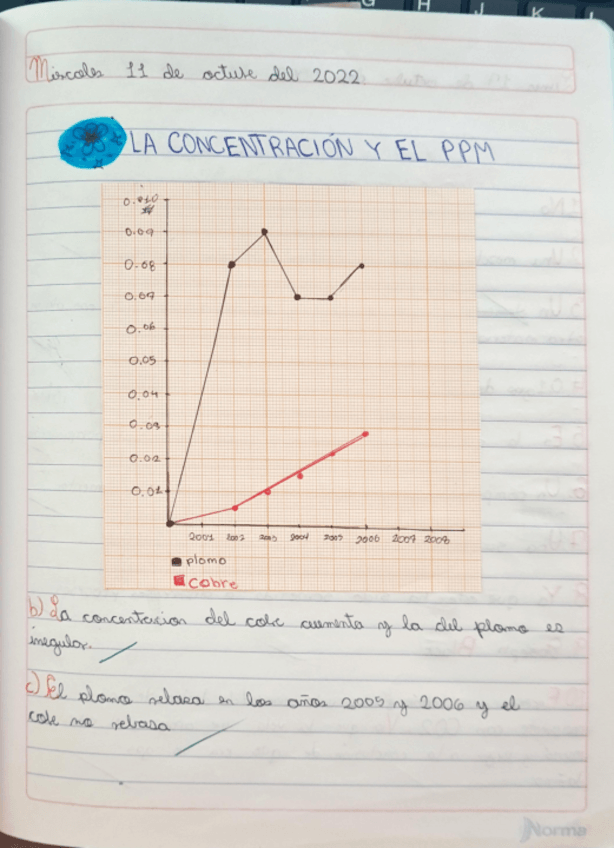 Miercoles 11 de octubre del 2022
LA CONCENTRACIÓN Y EL PPM
0.010
0.09
0.08
0.07
0.06
0.05
0.04
0.03
0.02
0.01
2001 2002 2003 2004 2005 2006 2007 2008
plomo
cobre
b) La concentracion del cobre aumenta y la del plomo es
irregular.
c) El plomo rebasa en los años 2005 y 2006 y el
cobre no rebasa
Norma